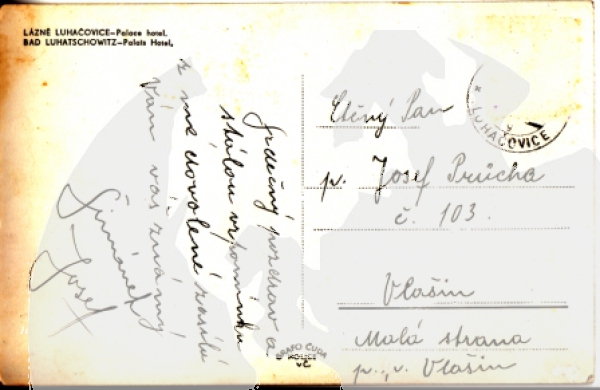 LÁZNĚ LUHAČOVICE—Palace hotel.
BAD LUHATSCHOWITZ—Palais Hotel,
Srdečný pozdrav a
stálou vzpomínku
z mé dovolené zasílá
Vám váš známý
Šimánek
Josef
LUHAČOVICE
Ctěný Pan
p. Josef Průcha
č. 103.
Vlašim
Malá strana
p., v. Vlašim
GRAFO ČUDA
HOLICE